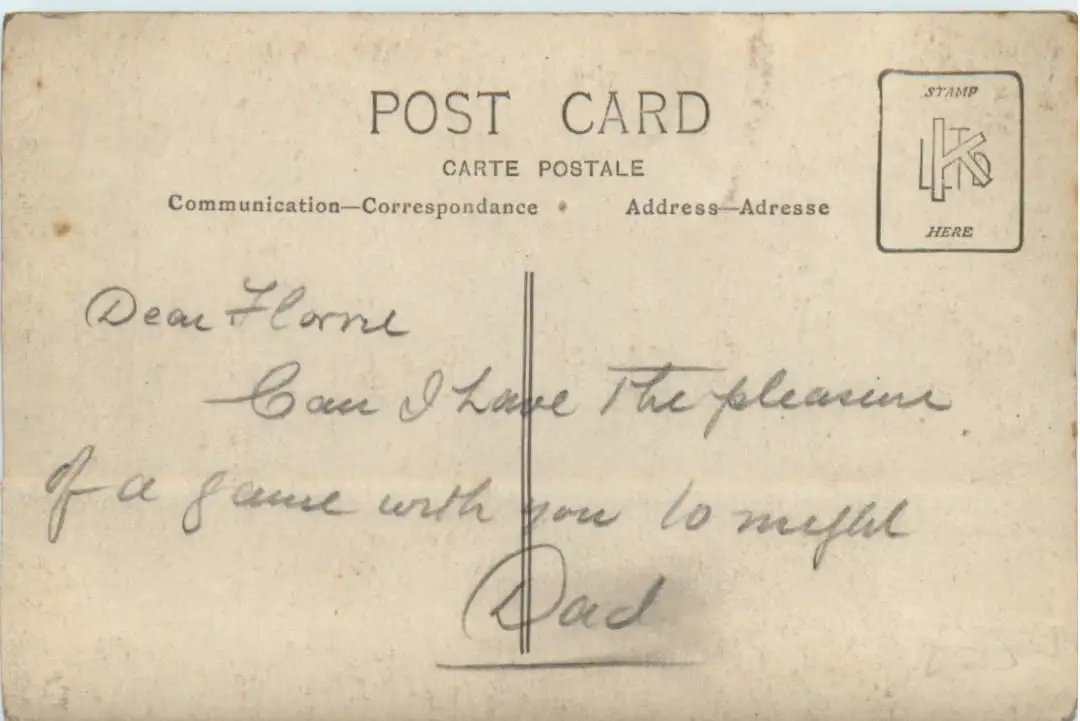 POST CARD
CARTE POSTALE
Communication—Correspondance • Address—Adresse
STAMP
K LTD
HERE
Dear Florrie
Can I have the pleasure
of a game with you to night
Dad